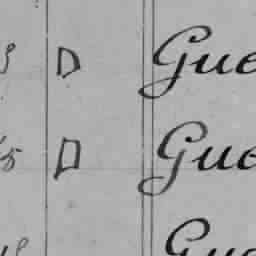 D Gue
5 D Gue
Gue